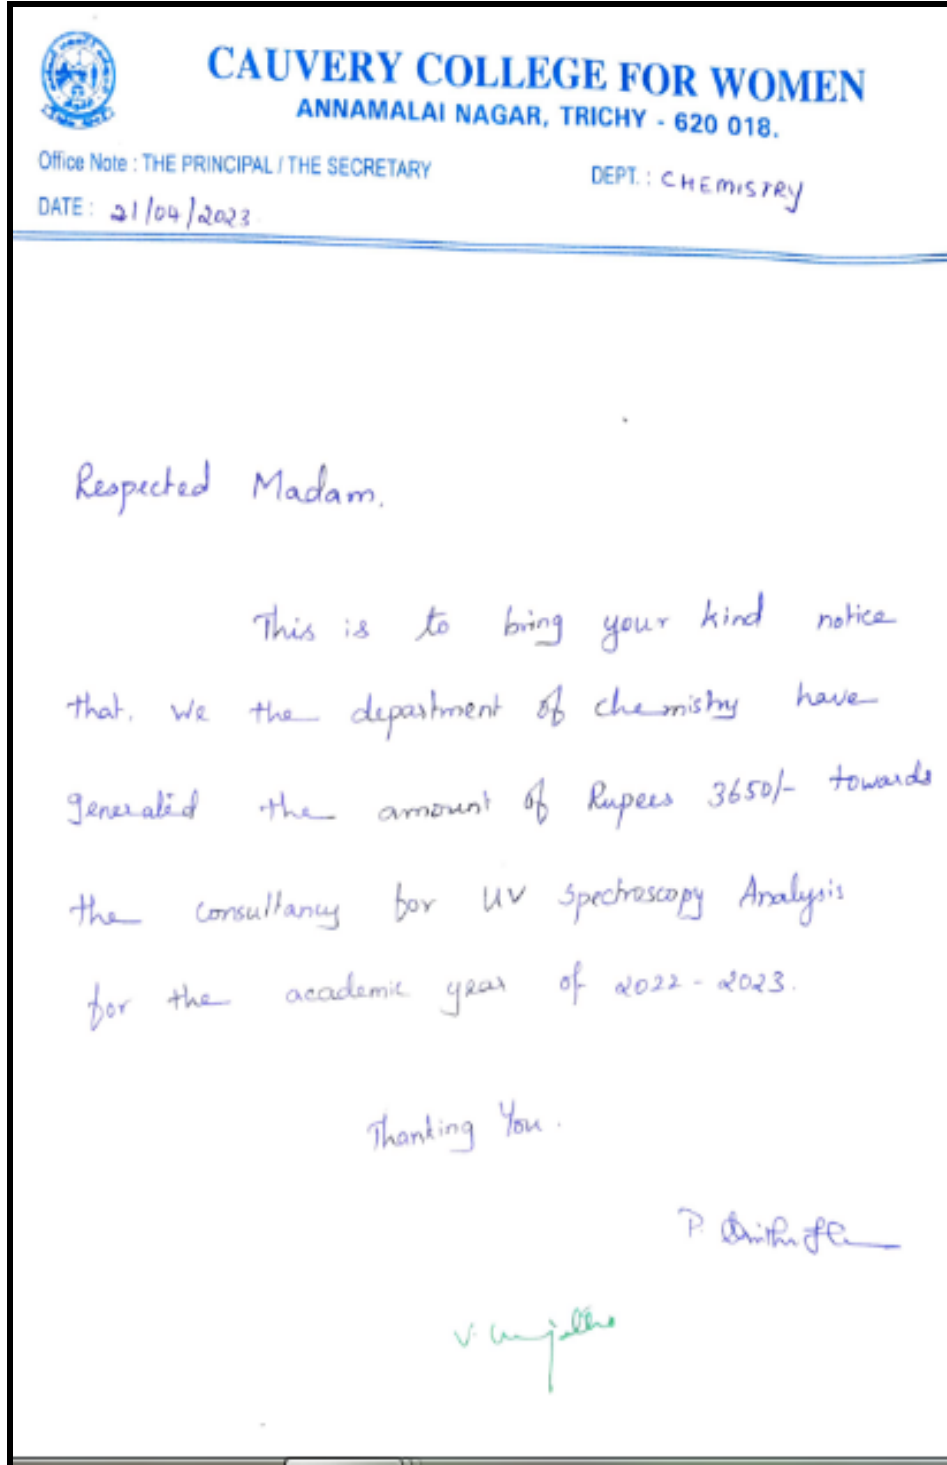 CAUVERY COLLEGE FOR WOMEN
ANNAMALAI NAGAR, TRICHY - 620 018.
Office Note : THE PRINCIPAL / THE SECRETARY
DEPT. : CHEMISTRY
DATE : 21/04/2023
Respected Madam,
This is to bring your kind notice
that, we the department of chemistry have
generated the amount of Rupees 3650/- towards
the consultancy for UV Spectroscopy Analysis
for the academic year of 2022-2023.
Thanking You.
P.
V.